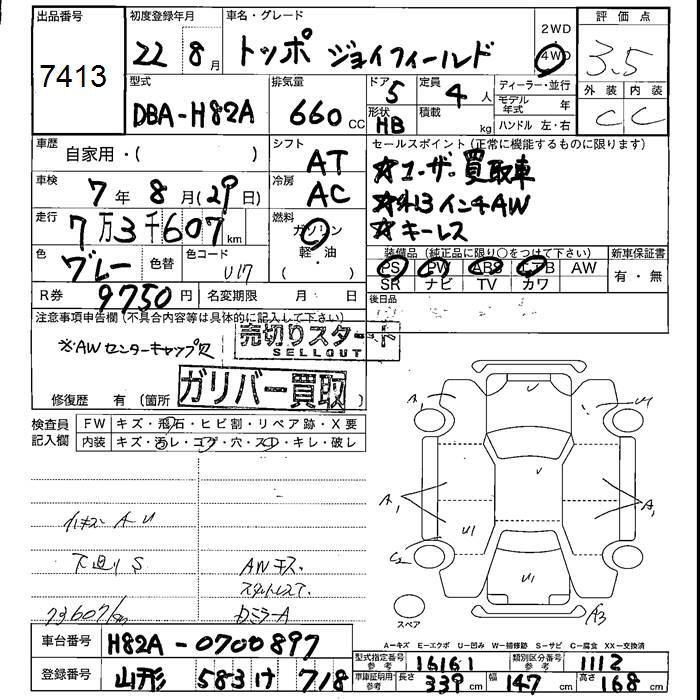 出品番号 初度登録年月 車名・グレード 2WD 評価点
7413 22年 8月 トッポ ジョイフィールド 4WD 3.5
型式 排気量 ドア 5 定員 4人 ディーラー・並行 外装 内装
DBA-H82A 660cc 形状 HB 積載 kg モデル年式 年 C C
ハンドル 左・右
車歴 自家用・( ) シフト AT セールスポイント(正常に機能するものに限ります)
車検 7年 8月(29日) 冷房 AC ☆ユーザー買取車
走行 7万3千607km 燃料 ガソリン 軽・油 ( ) ☆外13インチAW
☆キーレス
色 グレー 色替 色コード U17 装備品(純正品に限り○をつけて下さい) 新車保証書
PS PW ABS エアB AW 有・無
SR ナビ TV カワ
R券 9750円 名変期限 月 日 後日品
注意事項申告欄(不具合内容等は具体的に記入して下さい)
売切りスタート
SELLOUT
※AWセンターキャップ欠
ガリバー買取
修復歴 有(箇所
検査員記入欄 FW キズ・飛石・ヒビ割・リペア跡・X要
内装 キズ・汚レ・コゲ・穴・スレ・キレ・破レ
A1 U U1
U
A1 A1
U1
C2 U1
A3
スペア
下廻りS AWキズ
73607km
A=キズ E=エクボ U=凹み W=補修跡 S=サビ C=腐食 XX=交換済
車台番号 H82A-0700897
型式指定番号 参考 16161 類別区分番号 参考 1112
登録番号 山形 583 け 718
車庫証明用 参考 長さ 339cm 幅 147cm 高さ 168cm